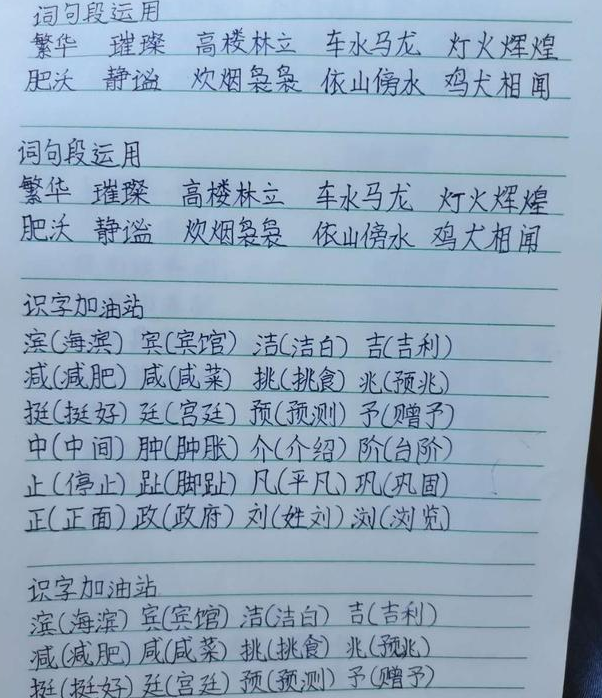 词句段运用
繁华 璀璨 高楼林立 车水马龙 灯火辉煌
肥沃 静谧 炊烟袅袅 依山傍水 鸡犬相闻
词句段运用
繁华 璀璨 高楼林立 车水马龙 灯火辉煌
肥沃 静谧 炊烟袅袅 依山傍水 鸡犬相闻
识字加油站
滨(海滨) 宾(宾馆) 洁(洁白) 吉(吉利)
减(减肥) 咸(咸菜) 挑(挑食) 兆(预兆)
挺(挺好) 廷(宫廷) 预(预测) 予(赠予)
中(中间) 肿(肿胀) 介(介绍) 阶(台阶)
止(停止) 趾(脚趾) 凡(平凡) 巩(巩固)
正(正面) 政(政府) 刘(姓刘) 浏(浏览)
识字加油站
滨(海滨) 宾(宾馆) 洁(洁白) 吉(吉利)
减(减肥) 咸(咸菜) 挑(挑食) 兆(预兆)
挺(挺好) 廷(宫廷) 预(预测) 予(赠予)